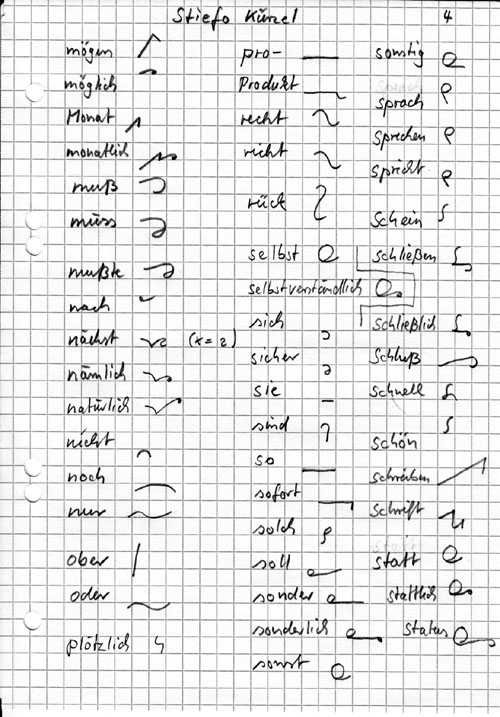 Stiefo Kürzel 4
mögen
möglich
Monat
monatlich
muß
müss
mußte
nach
nächst (x = z)
nämlich
natürlich
nicht
noch
nur
ober
oder
plötzlich
pro-
Produkt
recht
richt
rück
selbst
selbstverständlich
sich
sicher
sie
sind
so
sofort
solch
soll
sonder
sonderlich
sonst
sonstig
sprach
sprechen
spricht
schein
schließen
schließlich
Schluß
schnell
schön
schreiben
schrift
statt
stattlich
status